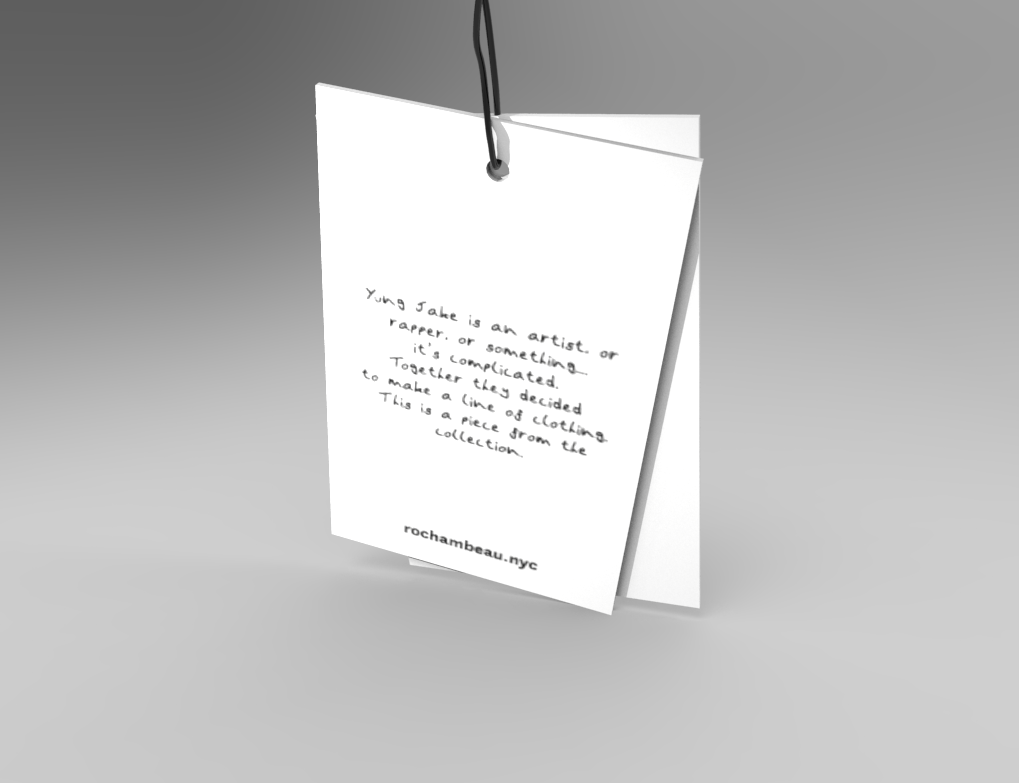 Yung Jake is an artist. or
rapper. or something
it's complicated.
Together they decided
to make a line of clothing
This is a piece from the
collection.
rochambeau.nyc